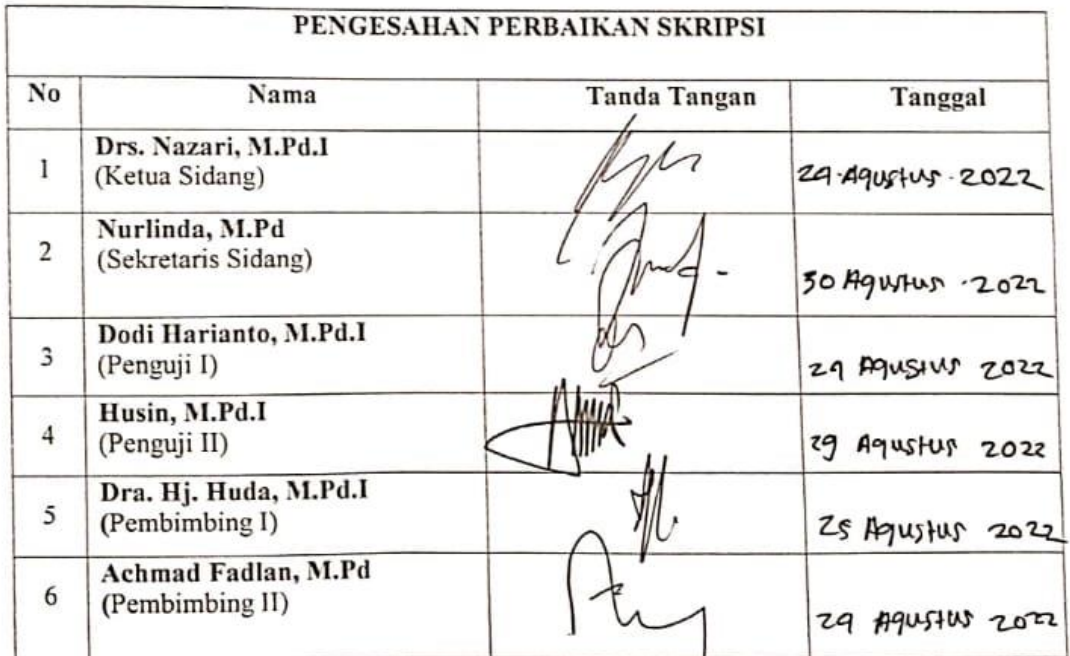 PENGESAHAN PERBAIKAN SKRIPSI
No Nama Tanda Tangan Tanggal
1 Drs. Nazari, M.Pd.I
(Ketua Sidang)
29 · Agustus · 2022
2 Nurlinda, M.Pd
(Sekretaris Sidang)
30 Agustus · 2022
3 Dodi Harianto, M.Pd.I
(Penguji I)
29 Agustus 2022
4 Husin, M.Pd.I
(Penguji II)
29 Agustus 2022
5 Dra. Hj. Huda, M.Pd.I
(Pembimbing I)
25 Agustus 2022
6 Achmad Fadlan, M.Pd
(Pembimbing II)
29 Agustus 2022